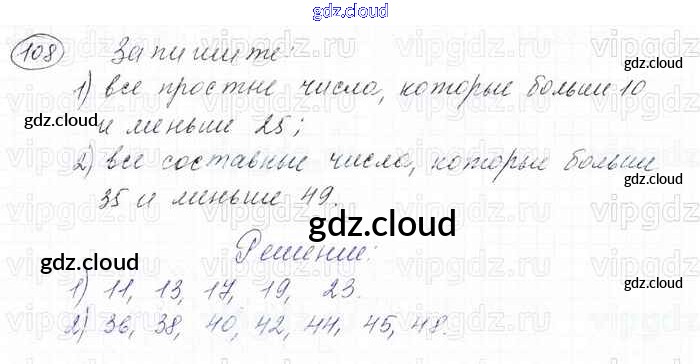 gdz.cloud
108 Запишите:
1) все простые числа, которые больше 10
и меньше 25;
2) все составные числа, которые больше
35 и меньше 49.
Решение:
1) 11, 13, 17, 19, 23.
2) 36, 38, 40, 42, 44, 45, 48.
gdz.cloud
gdz.cloud
gdz.cloud
gdz.cloud
gdz.cloud
gdz.cloud